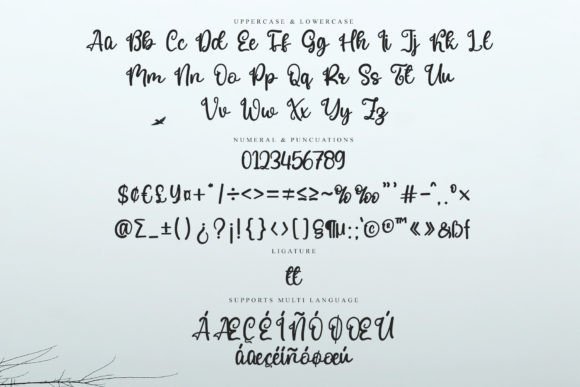 UPPERCASE & LOWERCASE
Aa Bb Cc Dd Ee Ff Gg Hh Ii Jj Kk Ll
Mm Nn Oo Pp Qq Rr Ss Tt Uu
Vv Ww Xx Yy Zz
NUMERAL & PUNCUATIONS
0123456789
$¢€£¥¤+*/÷<>=≠≤≥~%‰"'#-^,.º×
@Σ_±()¿?¡!{}‹›[]§¶µ:;'©®™«»&ßf
LIGATURE
tt
SUPPORTS MULTI LANGUAGE
ÁÆÇÉÍÑÓØŒÚ
áæçéíñóøœú